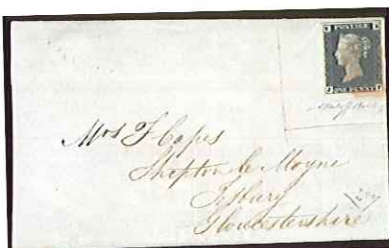 POSTAGE
ONE PENNY
Mrs F Capes
Shipton le Moyne
Tetbury
Gloucestershire